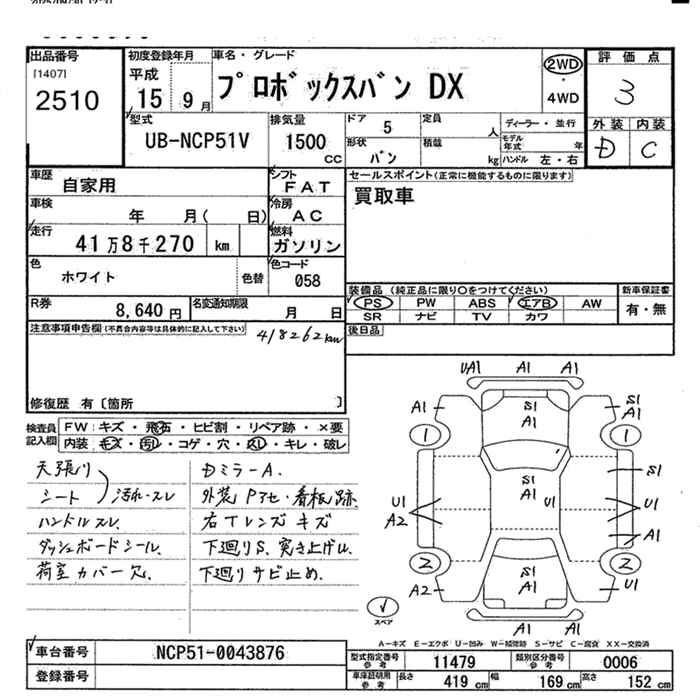 出品番号
[1407]
2510
初度登録年月
平成
15 9月
車名・グレード
プロボックスバン DX
2WD
・
4WD
評価点
3
外装 内装
D C
型式
UB-NCP51V
排気量
1500
cc
ドア 5
定員 人
ディーラー・並行
形状 バン
積載 kg
モデル年式 年
ハンドル 左・右
車歴
自家用
シフト
FAT
セールスポイント(正常に機能するものに限ります)
買取車
車検
年 月( 日)
冷房
AC
走行
41万8千270 km
燃料
ガソリン
色
ホワイト
色替
色コード
058
装備品 (純正品に限り○をつけてください)
PS PW ABS エアB AW
SR ナビ TV カワ
新車保証書
有・無
R券
8,640円
名変通知期限
月 日
後日品
注意事項申告欄(不具合内容等は具体的に記入して下さい)
418262km
修復歴 有〔箇所 〕
検査員
記入欄
FW:キズ・飛石・ヒビ割・リペア跡・×要
内装:キズ・汚れ・コゲ・穴・スレ・キレ・破レ
天張り
シート 汚れ・スレ
ハンドルスレ.
ダッシュボードシール.
荷室カバー欠.
DミラーA.
外装Pアセ・看板跡.
右Tレンズキズ
下廻りS、突き上げU.
下廻りサビ止め.
UA1 A1 A1
A1 S1 A1 S1 A1
1 1
S1
U1 A2 S1 A1 U1 U1
A1
2 2
A2 S1 A1 U1
A1 A1
スペア
A-キズ E-エクボ U-凹み W-補修跡 S-サビ C-腐食 XX-交換済
車台番号
NCP51-0043876
登録番号
型式指定番号
参考
11479
類別区分番号
参考
0006
車庫証明用
参考
長さ 419 cm 幅 169 cm 高さ 152 cm